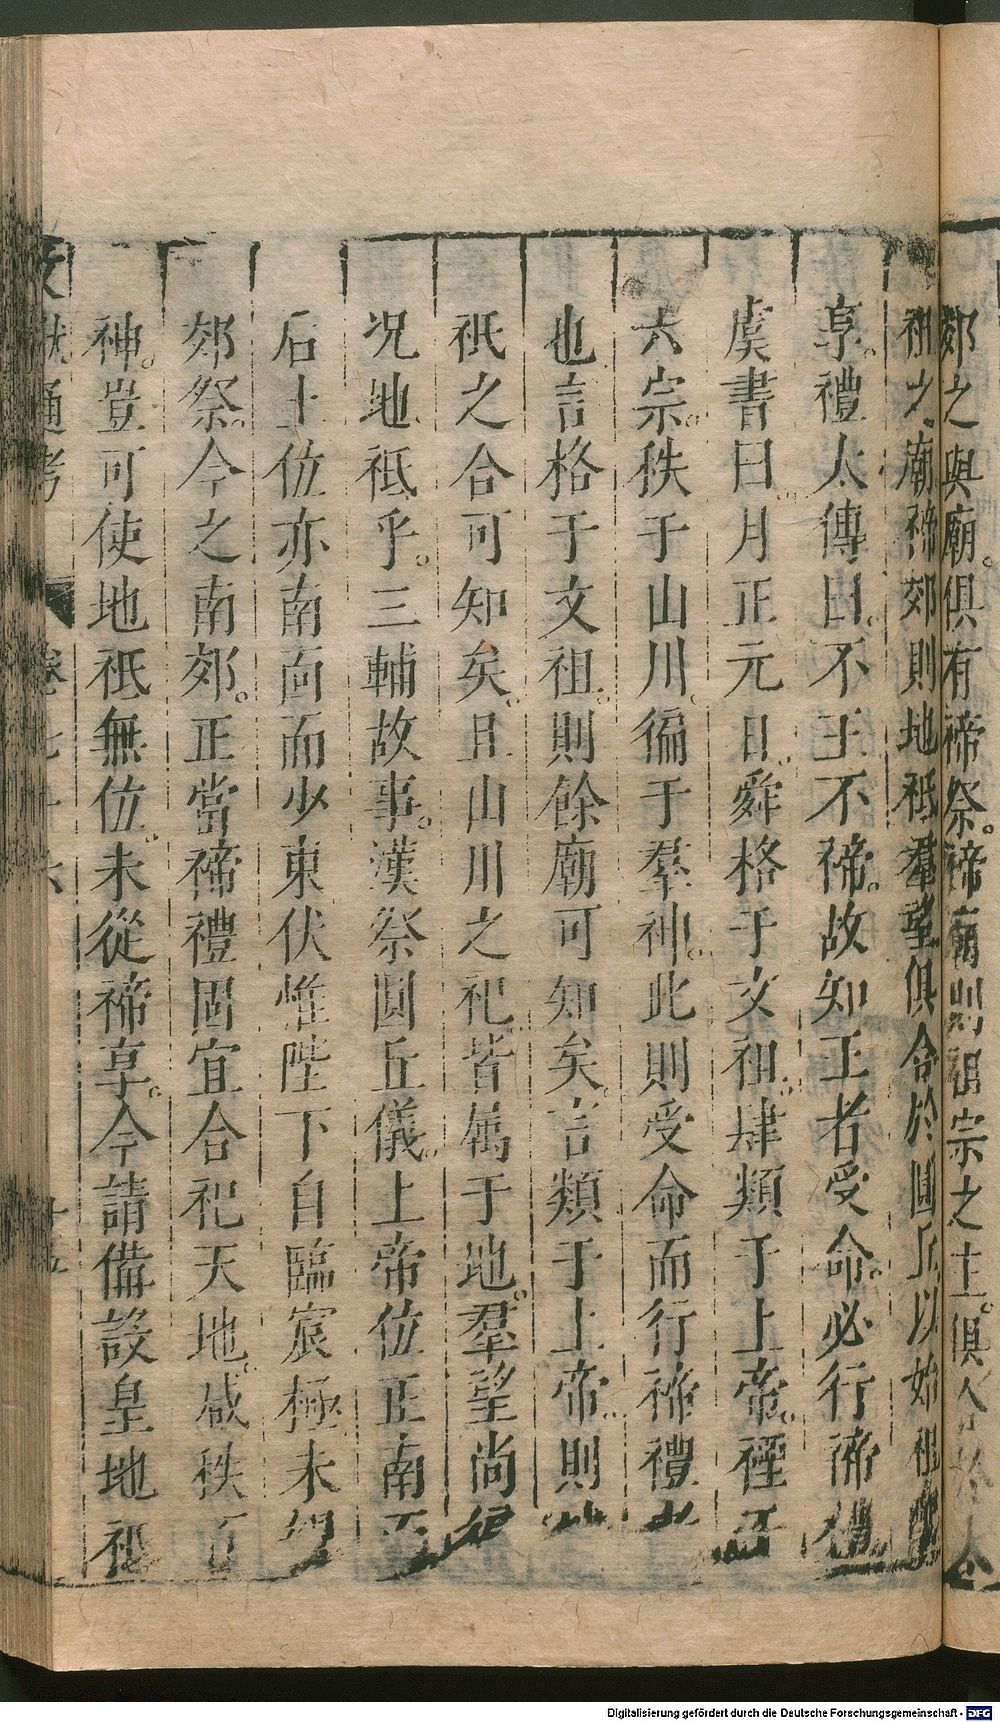 郊之與廟。俱有禘祭。禘廟則祖宗之主。俱合於太
祖之廟禘郊則地祇羣望俱合於圓丘以始祖配
享。禮太傳曰。不王不禘。故知王者受命。必行禘禮
虞書曰。月正元日。舜格于文祖。肆類于上帝。禋于
六宗。秩于山川。徧于羣神。此則受命而行禘禮者
也言格于文祖。則餘廟可知矣。言類于上帝。則
祇之合可知矣。且山川之祀。皆属于地。羣望尚
況地祇乎。三輔故事。漢祭圓丘儀。上帝位正南面
后土位亦南面而少東伏惟陛下自臨宸極未
郊祭。今之南郊。正當禘禮固宜合祀天地。咸秩百
神。豈可使地祇無位。未從禘享。今請備設皇地祇
文獻通考 卷七十六 十五
Digitalisierung gefördert durch die Deutsche Forschungsgemeinschaft - DFG